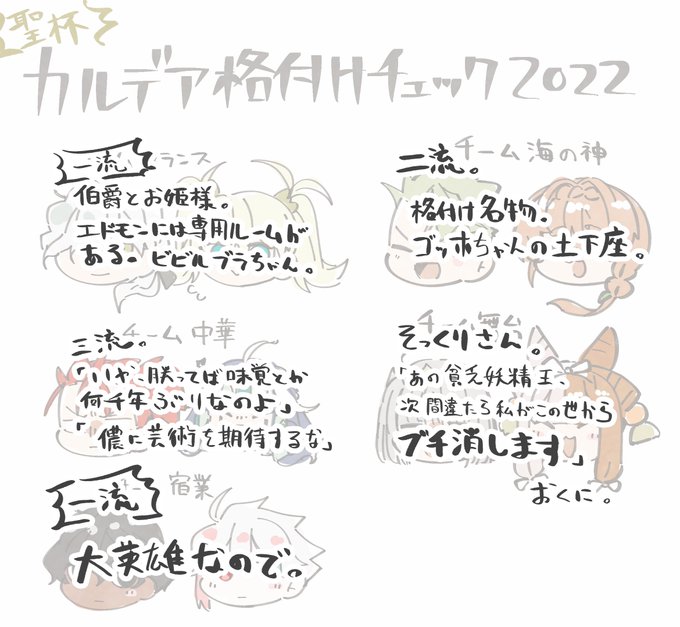 聖杯
カルデア格付けチェック2022
一流 ランス
伯爵とお姫様。
エドモンには専用ルームが
ある。ビビルブラちゃん。
チーム海の神
二流。
格付け名物。
ゴッホちゃんの土下座。
チーム中華
三流。
「いや、朕ってば味覚とか
何千年ぶりなのよ」
「儂に芸術を期待するな」
そっくりさん。
「あの貧乏妖精王、
次間違たら私がこの世から
ブチ消します」
おくに。
宿業
一流
大英雄なので。